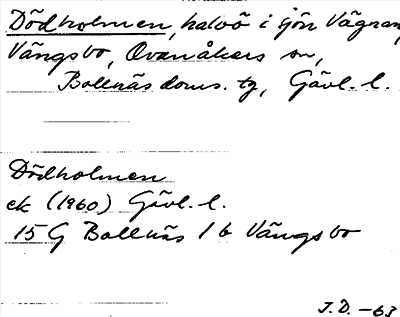 Dödholmen, halvö i sjön Vägnan,
Vängsbo, Ovanåkers sn,
Bollnäs doms. tg, Gävl. l.
Dödholmen
ek (1960) Gävl. l.
15 G Bollnäs 1 b Vängsbo
J.D. -63